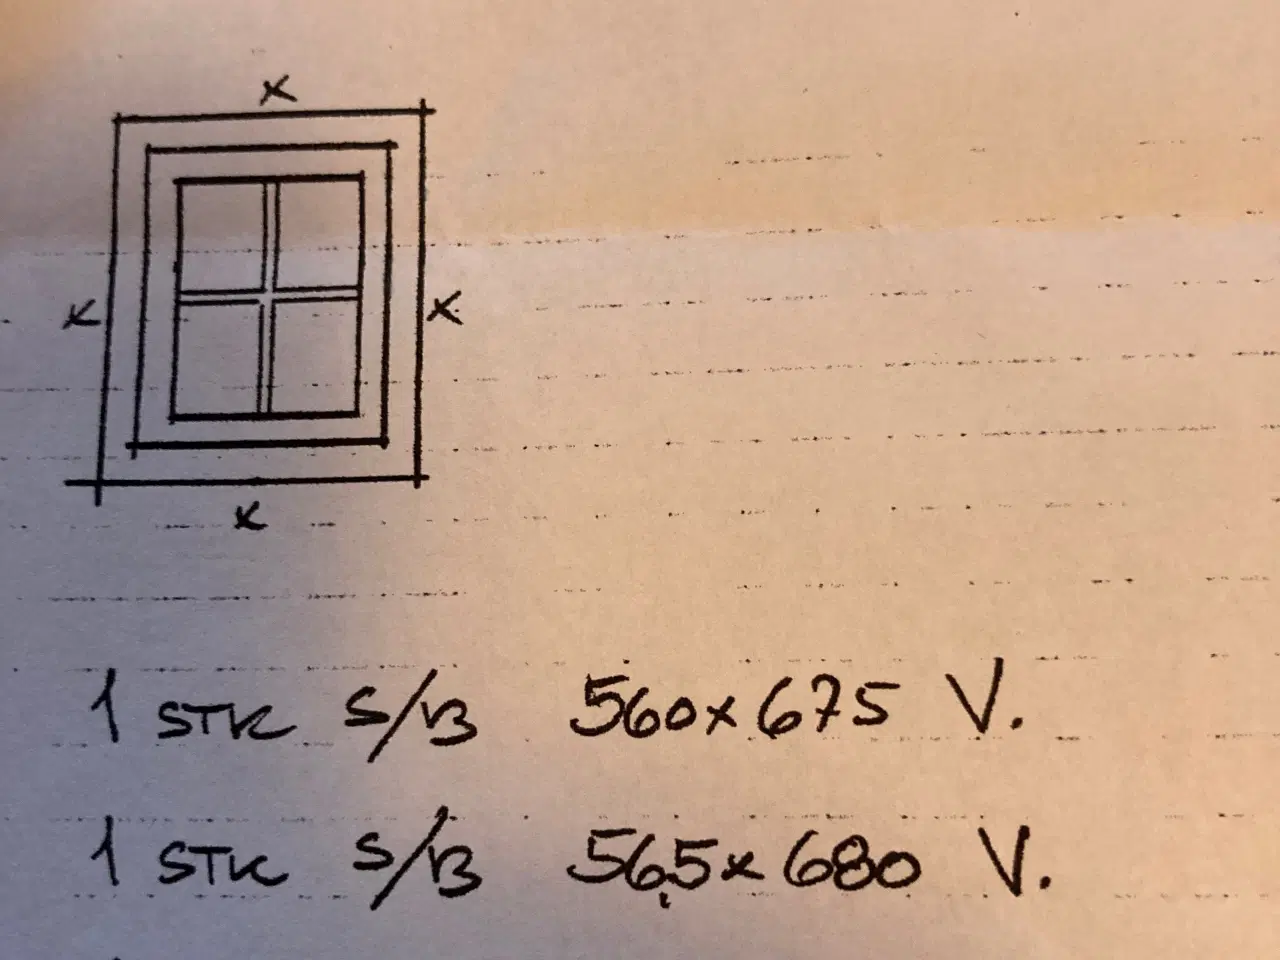 x
x
x
x
1 STK S/B 560x675 V.
1 STK S/B 565x680 V.